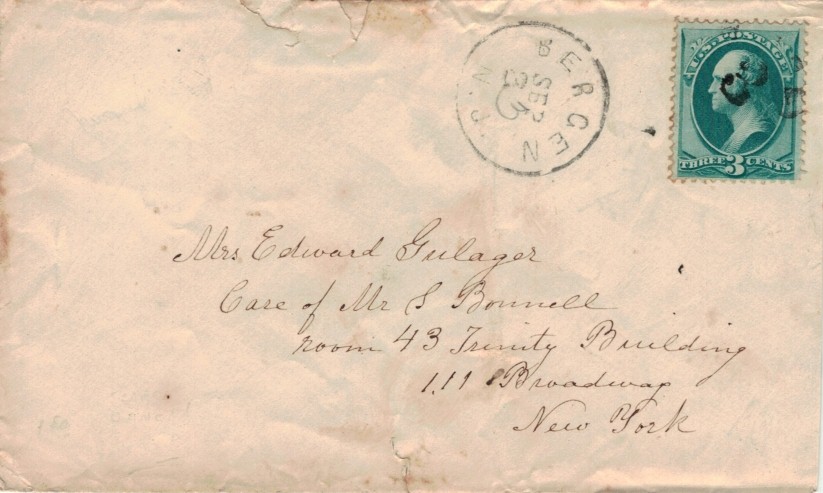 BERGEN N.J.
SEP
23
U.S. POSTAGE
THREE 3 CENTS
Mrs Edward Gulager
Care of Mr S Bonnell
room 43 Trinity Building
111 Broadway
New York